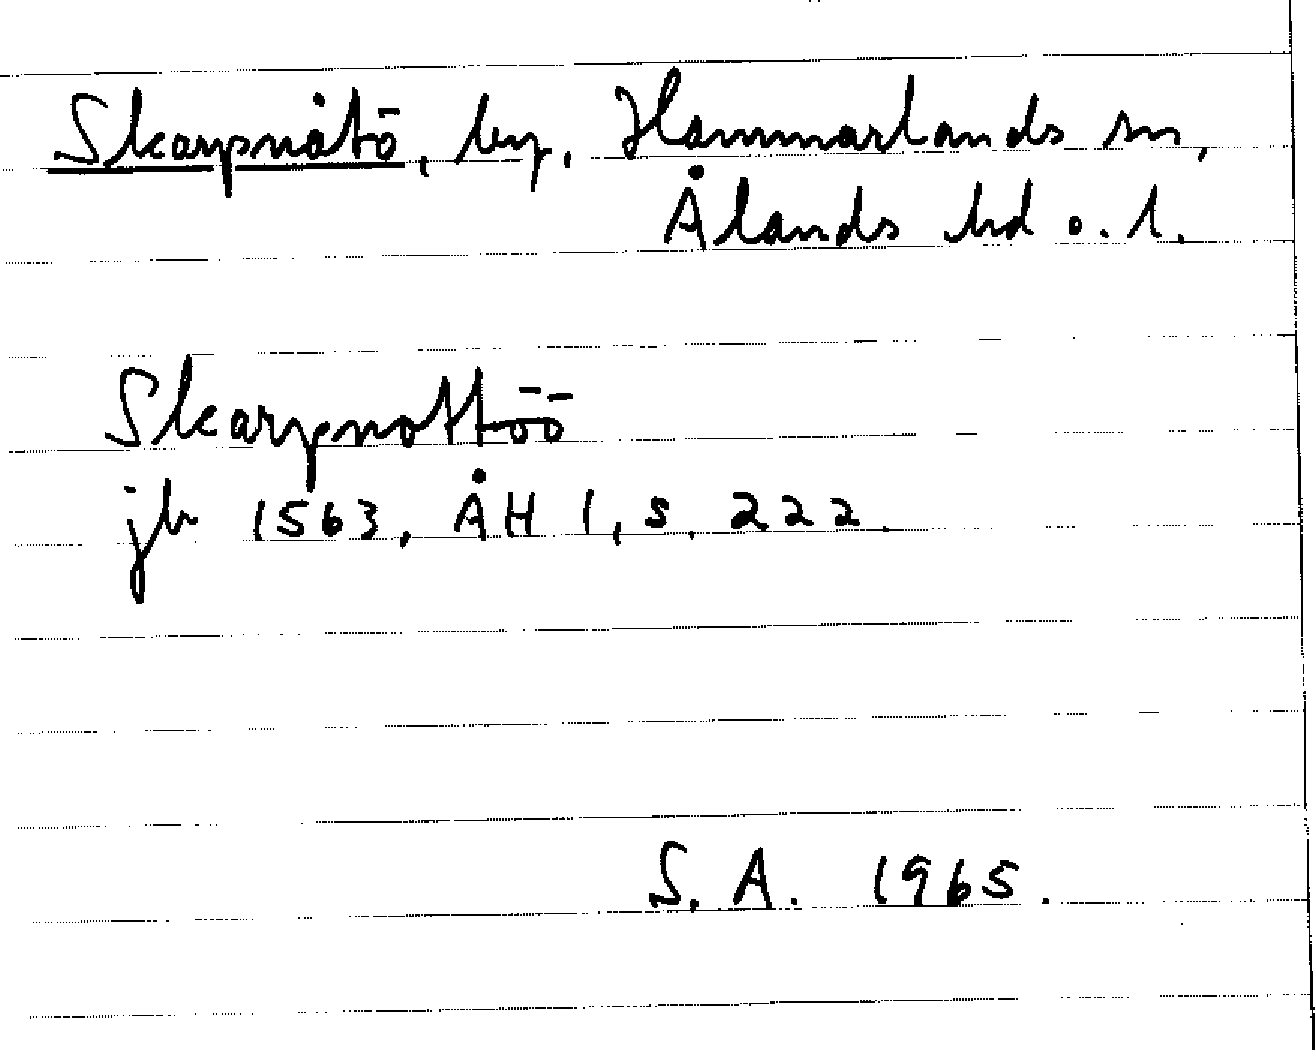 Skarpnåtö, by, Hammarlands sn,
Ålands hd o. l.
Skarpnottöö
jb 1563, ÅH 1, s. 222.
S. A. 1965.